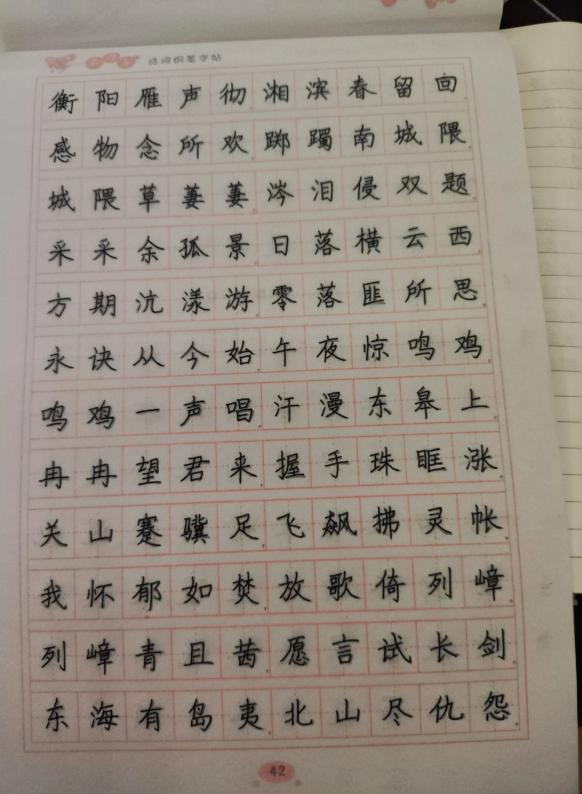 诗词钢笔字帖
衡阳雁声彻湘滨春留回
感物念所欢踯躅南城隈
城隈草萋萋涔泪侵双题
采采余孤景日落横云西
方期沆漾游零落匪所思
永诀从今始午夜惊鸣鸡
鸣鸡一声唱汗漫东皋上
冉冉望君来握手珠眶涨
关山蹇骥足飞飙拂灵帐
我怀郁如焚放歌倚列嶂
列嶂青且茜愿言试长剑
东海有岛夷北山尽仇怨
42